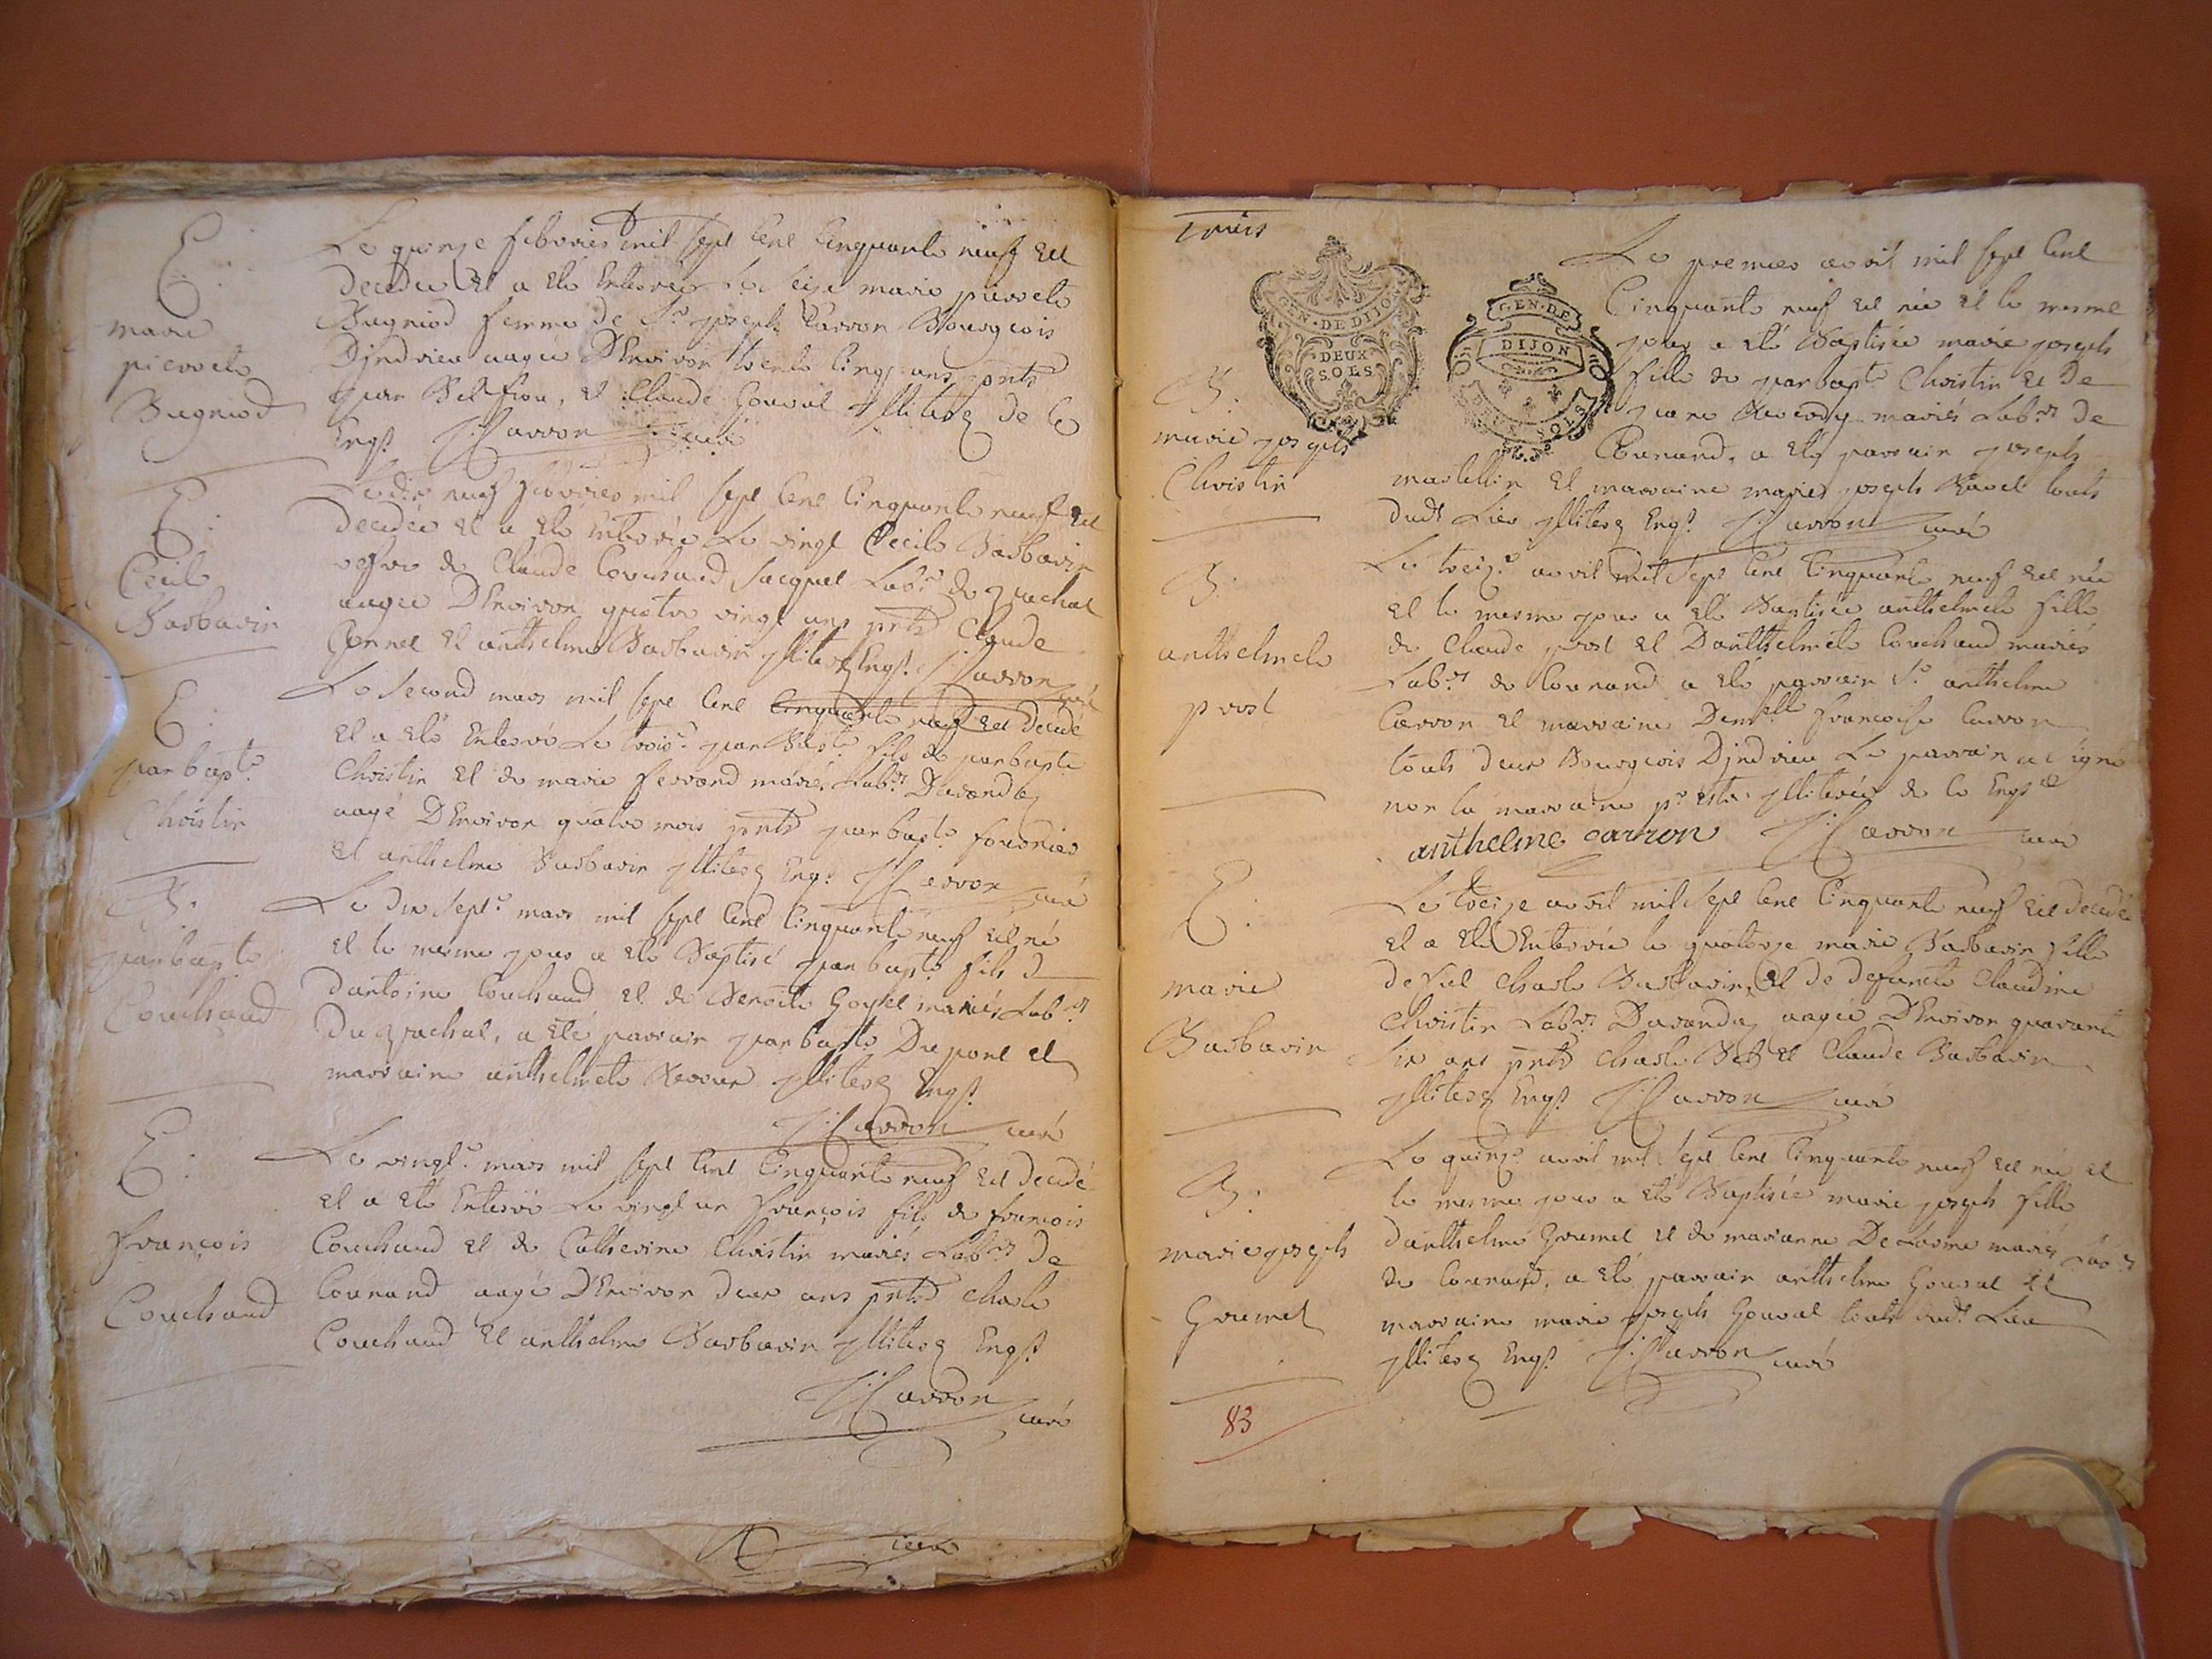 E.
marie
pierrete
Bugniod
Le quinze febvrier mil sept cent cinquante neuf est
decedée et a eté enterrée le seize marie pierrete
Bugniod femme de Sr joseph Carron Bourgeois
Djndrieu aagée D'Environ trente cinq ans pnts
jean et Claude Gouval jlliterez de ce
Enqs J Carron curé
E.
Cecile
Barbarin
Le dix neuf febvrier mil sept cent cinquante neuf est
decedée et a eté enterrée Le vingt Cecile Barbarin
vefve de Claude Couchaud Jacquet Labr de
aagée D'Environ quatre vingt ans pnts Claude
et anthelme Barbarin jlliterez Enqs J Carron curé
E.
jean bapte
Christin
Le second mars mil sept cent cinquante neuf est decedé
et a eté Enterré Le troise jean Bapte fils de jean bapte
Christin et de marie ferrand mariés Labrs
aagé D'Environ quatre mois pnts jean bapte fornier
et anthelme Barbarin jlliterez Enqs J Carron curé
B.
jean bapte
Couchaud
Le dix septe mars mil sept cent cinquante neuf est né
et le mesme jour a eté Baptisé jean bapte fils d
dantoine Couchaud et de Benoite Goyet mariés Labrs
du, a eté parrain jean bapte Dupont et
marraine anthelmete jlliterez Enqs
J Carron curé
E.
François
Couchaud
Le vingte mars mil sept cent cinquante neuf est decedé
et a eté Enterré Le vingt un François fils de françois
Couchaud et de Catherine Christin mariés Labrs de
Connand aagé D'Environ deux ans pnts charle
Couchaud et anthelme Barbarin jlliterez Enqs
J Carron
curé
trois
GEN. DE DIJON
DEUX
SOLS
GEN. DE
DIJON
B.
marie joseph
Christin
Le premier avril mil sept cent
Cinquante neuf est née et le mesme
jour a eté Baptisée marie joseph
fille de jean bapte Christin et de
jeane mariés Labrs de
Connand, a eté parrain joseph
martellin et marraine marie joseph touts
dudt Lieu jlliterez Enqs J Carron curé
B.
anthelmete
prost
Le treize avril mil sept cent cinquante neuf est née
et le mesme jour a eté Baptisée anthelmete fille
de Claude prost et D'anthelmete Couchaud mariés
Labrs de Connand a eté parrain Sr anthelme
Carron et marraine Demelle françoise Carron
touts deux Bourgeois Djndrieu Le parrain a signé
non la marraine pr estre jlliterée de ce Enqse
anthelme carron J Carron curé
E.
marie
Barbarin
Le treize avril mil sept cent cinquante neuf est decedée
et a eté Enterrée le quatorze marie Barbarin fille
de feu charle Barbarin, et de defuncte Claudine
Christin Labrs aagée D'Environ quarante
six ans pnts charle et Claude Barbarin
jlliterez Enqs J Carron curé
B.
marie joseph
Gormel
Le quinze avril mil sept cent cinquante neuf est née et
le mesme jour a eté Baptisée marie joseph fille
danthelme Gormel et de marianne De Lorme mariés Labrs
de Connand, a eté parrain anthelme Gouval et
marraine marie joseph Gouval touts dudt Lieu
jlliterez Enqs J Carron curé
83